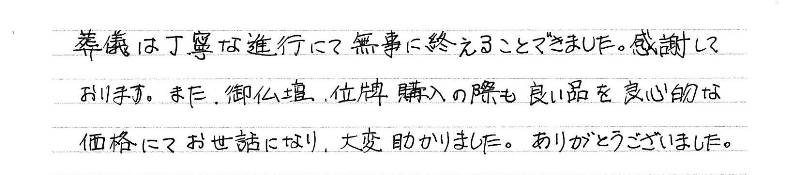 葬儀は丁寧な進行にて無事に終えることできました。感謝して
おります。また、御仏壇、位牌購入の際も良い品を良心的な
価格にてお世話になり、大変助かりました。ありがとうございました。